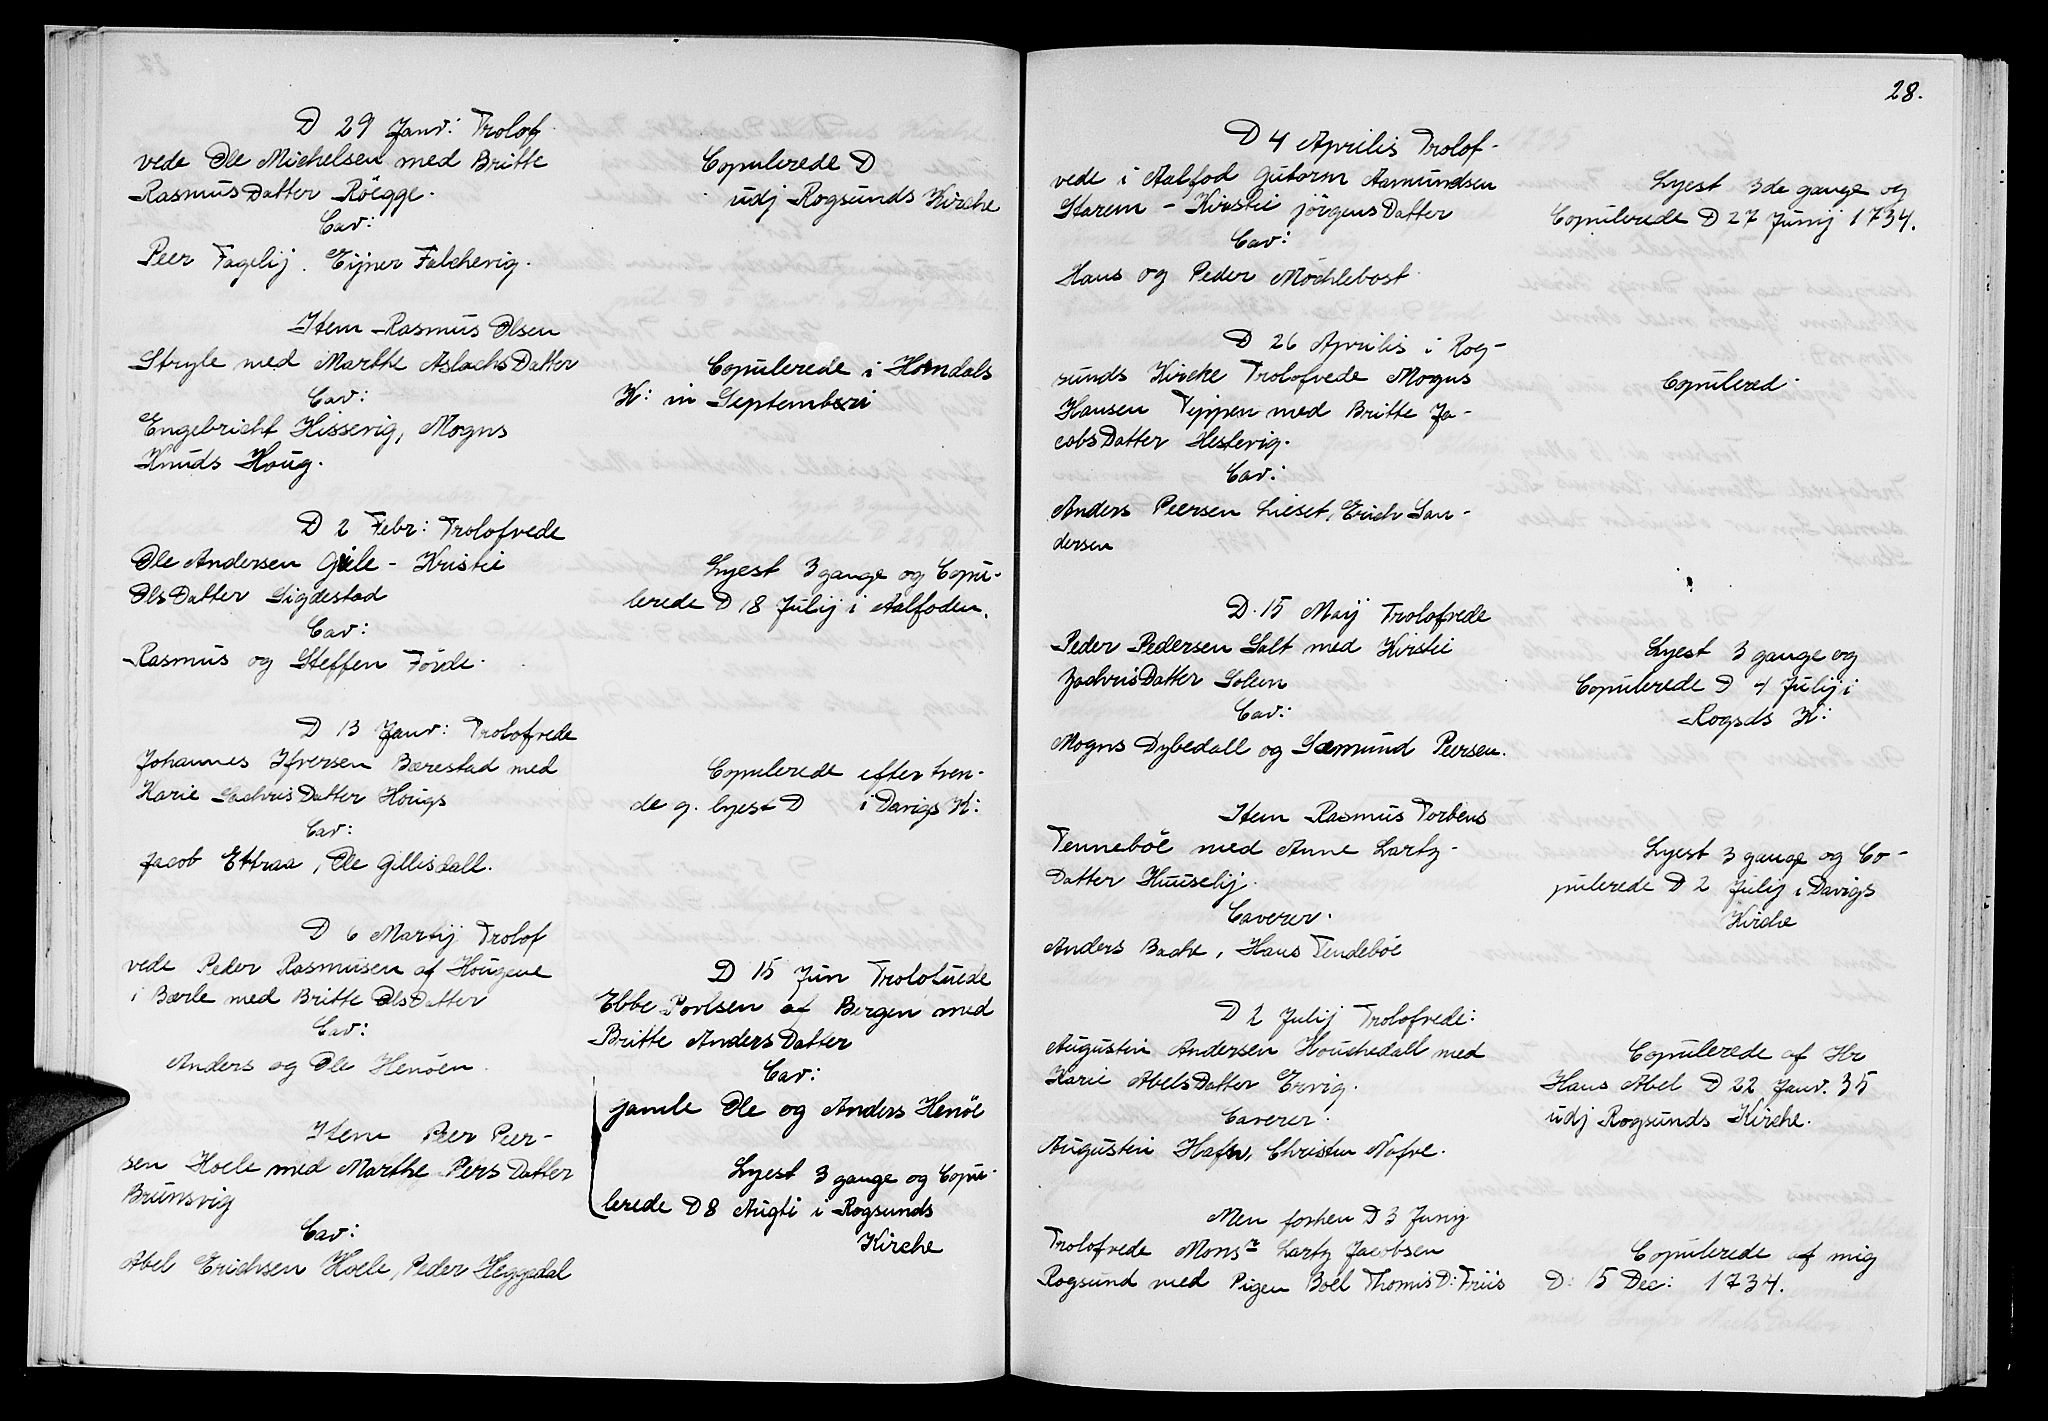 D 29 Janv: Trolof
vede Ole Michelsen med Britte
RasmusDatter Röegge.
Cav:
Peer Fagelij. Eijner Falchevig.
Copulerede D
udj Rogsunds Kirche
Item Rasmus Olsen
Stryle med Marthe AslachsDatter
Cav:
Engebricht Hissevig, Mogns
Knuds Houg.
Copulerede i Horndals
K: in Septembri
D 2 Febr: Trolofvede
Ole Andersen Giile - Kristie
OlsDatter Sigdestad
Cav:
Rasmus og Steffen Förde.
Lyest 3 gange og Copu-
lerede D 18 Julij i Aalfoden.
D 13 Janv: Trolofvede
Johannes Ifversen Bærestad med
Karie SachrisDatter Hougs
Cav:
Jacob Ettraa, Ole Gillisdall.
Copulerede efter tven-
de g. lyest D i Davigs K:
D 6 Martij Trolof
vede Peder Rasmusen af Hougene
i Bærle med Britte OlsDatter
Cav:
Anders og Ole Henöen.
Item Peer Peer-
sen Hoele med Marthe PersDatter
Brunsvig
Cav:
Abel Erichsen Hoele, Peder Heggedal
D 15 Jun Trololuede
Ebbe Povlsen af Bergen med
Britte AndersDatter
Cav:
gamle Ole og Anders Henöe
Lyest 3 gange og Copu-
lerede D 8 Augti i Rogsunds
Kirche
28.
D 4 Aprilis Trolof-
vede i Aalfod Gutorm Aamundsen
Starem - Kirstie JörgensDatter
Cav:
Hans og Peder Möchlebost
Lyest 3de gange og
Copulerede D 27 Junij 1734.
D 26 Aprilis i Rog-
sunds Kirche Trolofvede Mogns
Hansen Tippen med Britte Ja-
cobsDatter Hestevig.
Cav:
Anders Peersen Lieset, Erich San-
dersen
Copulered.
D. 15 Maij Trolofvede
Peder Pedersen Salt med Kirstie
ZachrisDatter Solem
Cav:
Mogns Dybedall og Sæmund Peersen.
Lyest 3 gange og
Copulerede D 4 Julij i
Rogsds K:
Item Rasmus Torbens
Tenneböe med Anne Lartz-
Datter Huuselij.
Caverer.
Anders Bache, Hans Tendeböe
Lyest 3 gange og Co-
pulerede D 2 Julij i Davigs
Kirche
D 2 Julij Trolofvede:
Augustin Andersen Houchedall med
Karie AbelsDatter Ervig.
Caverer:
Augustin Hafn, Christen Nafve.
Copulerede af Hr
Hans Abel D 22 Janv. 35
udj Rogsunds Kirche.
Men forhen D 3 Junij
Trolofvede Monsr Lartz Jacobsen
Rogsund med Pigen Boel Thomis D: Friis
Copulerede af mig
D: 15 Dec: 1734.